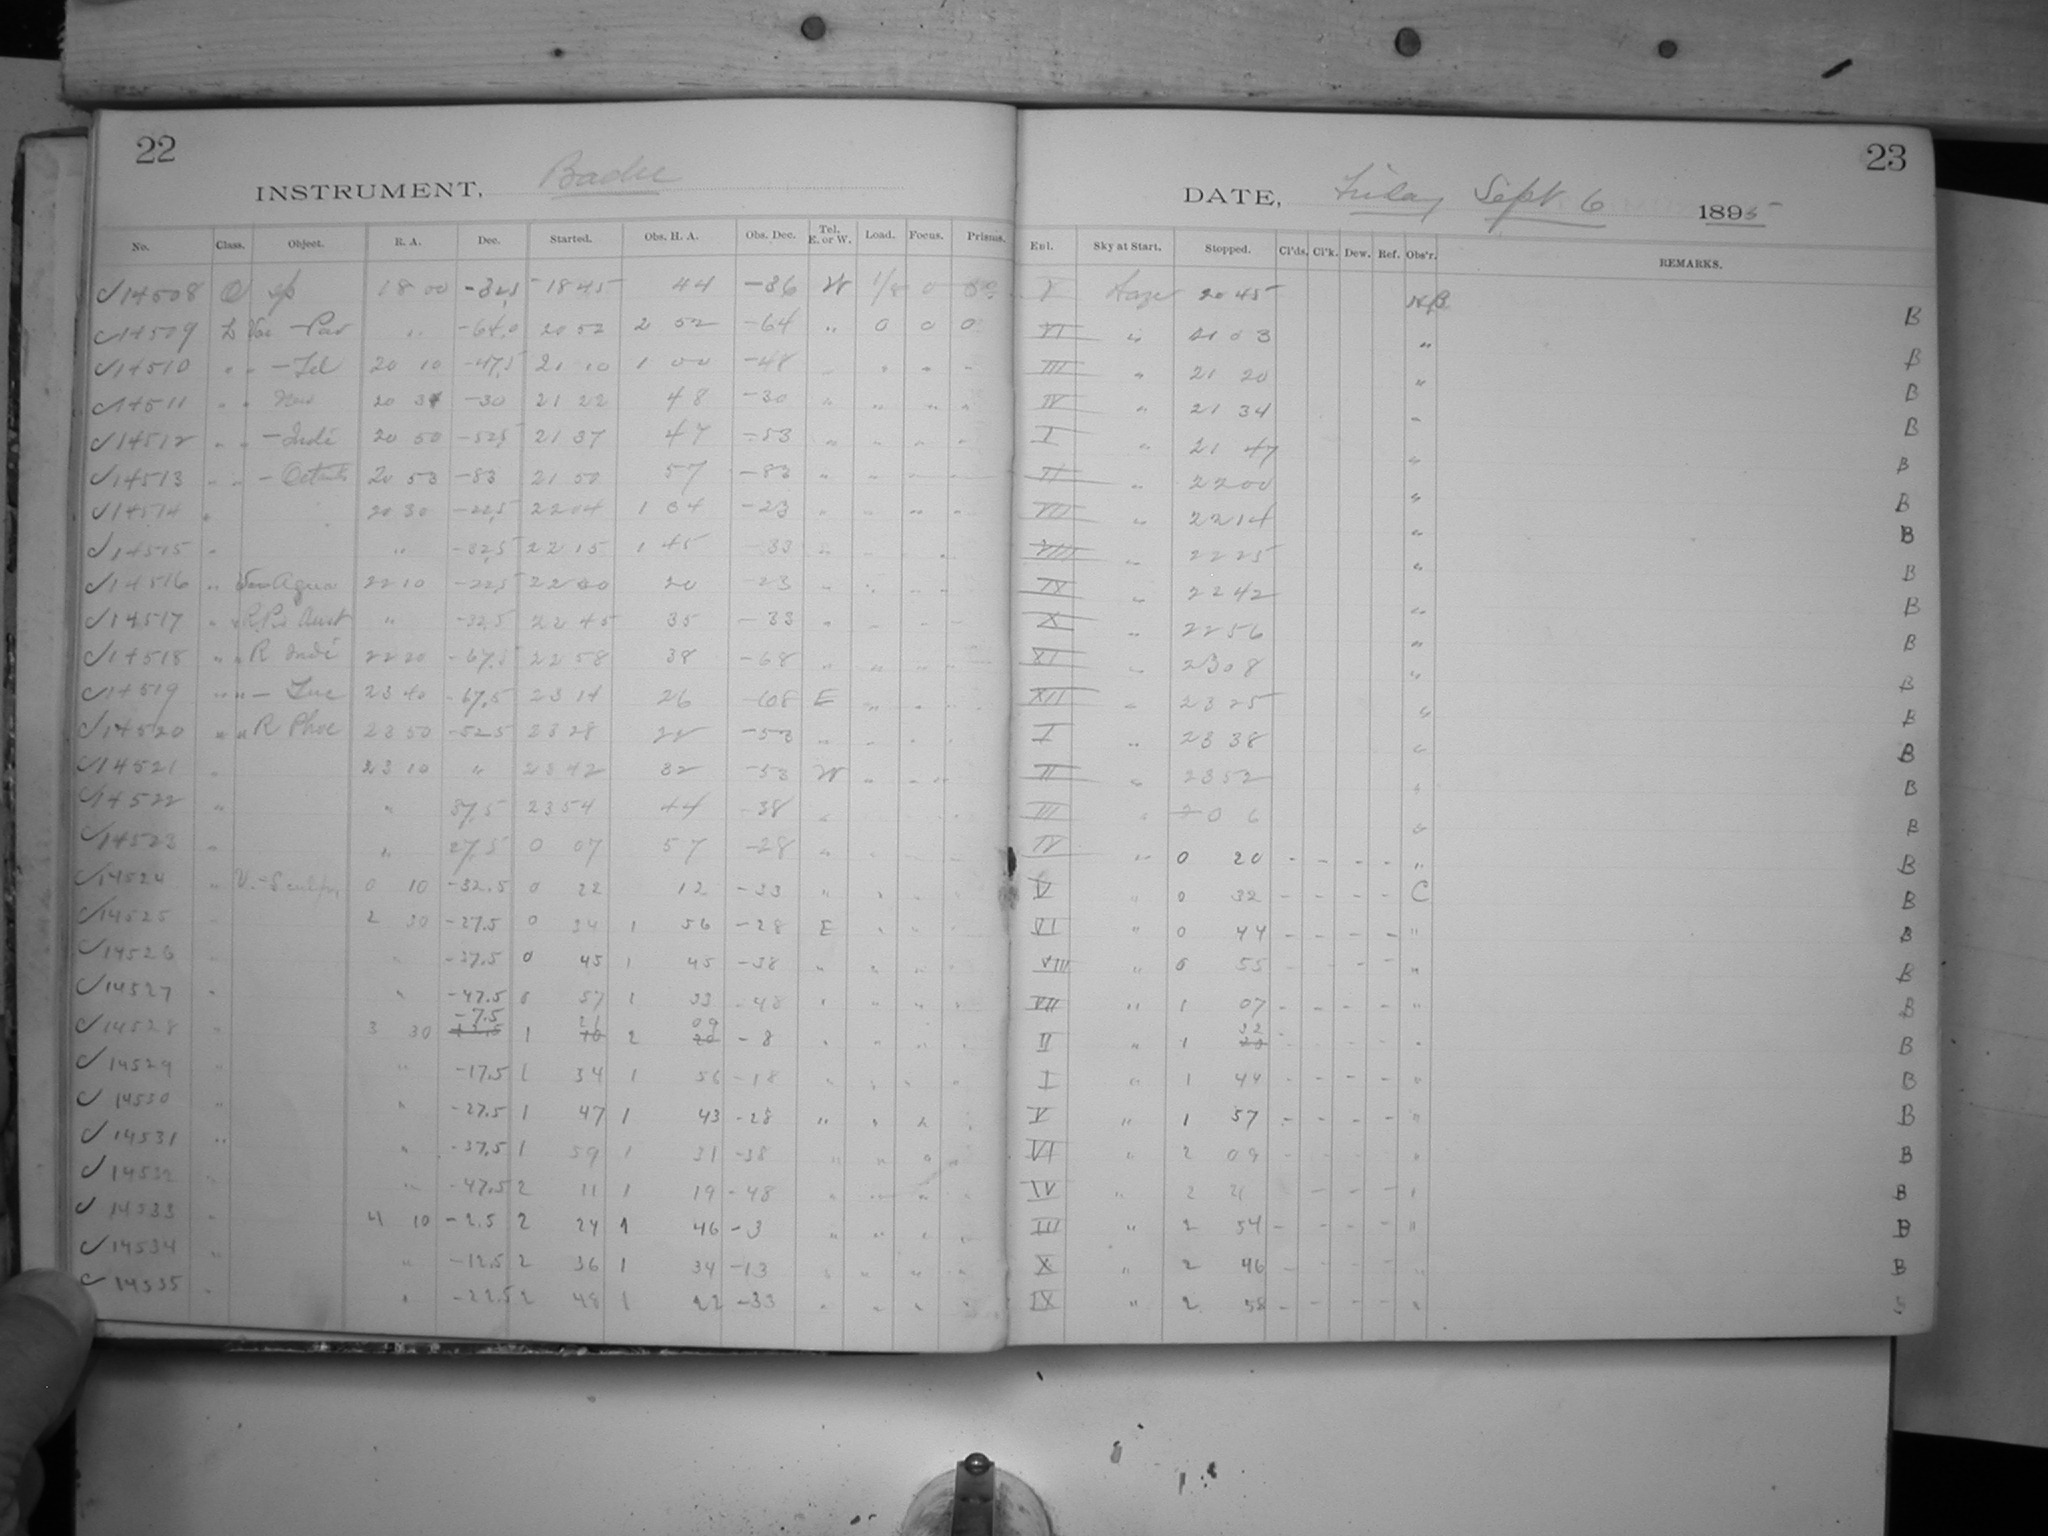 22
INSTRUMENT, Bache
No. Class. Object. R. A. Dec. Started. Obs. H. A. Obs. Dec. Tel. E. or W. Load. Focus. Prisms.
✓14508 sp 18 00 18 45 44 -36 W 0
✓14509 -Pav " -64.0 20 52 2 52 -64 " 0 0 0
✓14510 " " -Tel 20 10 -47.5 21 10 1 00 -48
✓14511 " " -30 21 22 48 -30 " " " "
✓14512 " " -Indi 20 50 -52.5 21 37 47 -53 " " " "
✓14513 " " -Octantis 20 53 -83 21 50 57 -83 " " " "
✓14514 " 20 30 -22.5 22 04 1 34 -23 " " " "
✓14515 " " -32.5 22 15 1 45 -33 " " " "
✓14516 " Aqua 22 10 -22.5 20 -23 " " " "
✓14517 " Aust " -32.5 22 45 35 -33 " " " "
✓14518 " " R Indi 22 20 -67.5 22 58 38 -68 " " " "
✓14519 " " - Tuc 23 40 -67.5 23 14 26 -68 E " " "
✓14520 " " R Phoe 23 50 -52.5 23 28 22 -53 " " " "
✓14521 " 23 10 " 23 42 32 -53 W " " "
✓14522 " " 37.5 23 54 44 -38 "
✓14523 " " 27.5 0 07 57 -28 "
✓14524 " 0 10 -32.5 0 22 12 -33 " " " "
✓14525 2 30 -27.5 0 34 1 56 -28 E " " "
✓14526 " " -37.5 0 45 1 45 -38 " " " "
✓14527 " " -47.5 0 57 1 33 -48 " " " "
✓14528 " 3 30 -7.5 1 21 2 09 -8 " " " "
✓14529 " " -17.5 1 34 1 56 -18 " " " "
✓14530 " " -27.5 1 47 1 43 -28 " " " "
✓14531 " " -37.5 1 59 1 31 -38 " " " "
✓14532 " -47.5 2 11 1 19 -48 " " " "
✓14533 " 4 10 -2.5 2 24 1 46 -3 " " " "
✓14534 " " -12.5 2 36 1 34 -13 " " " "
✓14535 " " -22.5 2 48 1 22 -33 " " " "
23
DATE, Friday Sept. 6 1895
Eul. Sky at Start. Stopped. Cl'ds. Cl'k. Dew. Ref. Obs'r. REMARKS.
V Haze 20 45 B
VI " 21 03 " B
III " 21 20 " B
IV " 21 34 " B
I " 21 47 " B
II " 22 00 " B
VII " 22 14 " B
VIII " 22 25 " B
IX " 22 42 " B
X " 22 56 " B
XI " 23 08 " B
XII " 23 25 " B
I " 23 38 " B
II " 23 52 " B
III " 0 6 " B
IV " 0 20 - - - - " B
V " 0 32 - - - - C B
VI " 0 44 - - - - " B
VIII " 0 55 - - - - " B
VII " 1 07 - - - - " B
II " 1 32 - - - - " B
I " 1 44 - - - - " B
V " 1 57 - - - - " B
VI " 2 09 - - - - " B
IV " 2 21 - - - " B
III " 2 34 - - - - " B
X " 2 46 - - - - " B
IX " 2 58 - - - - "